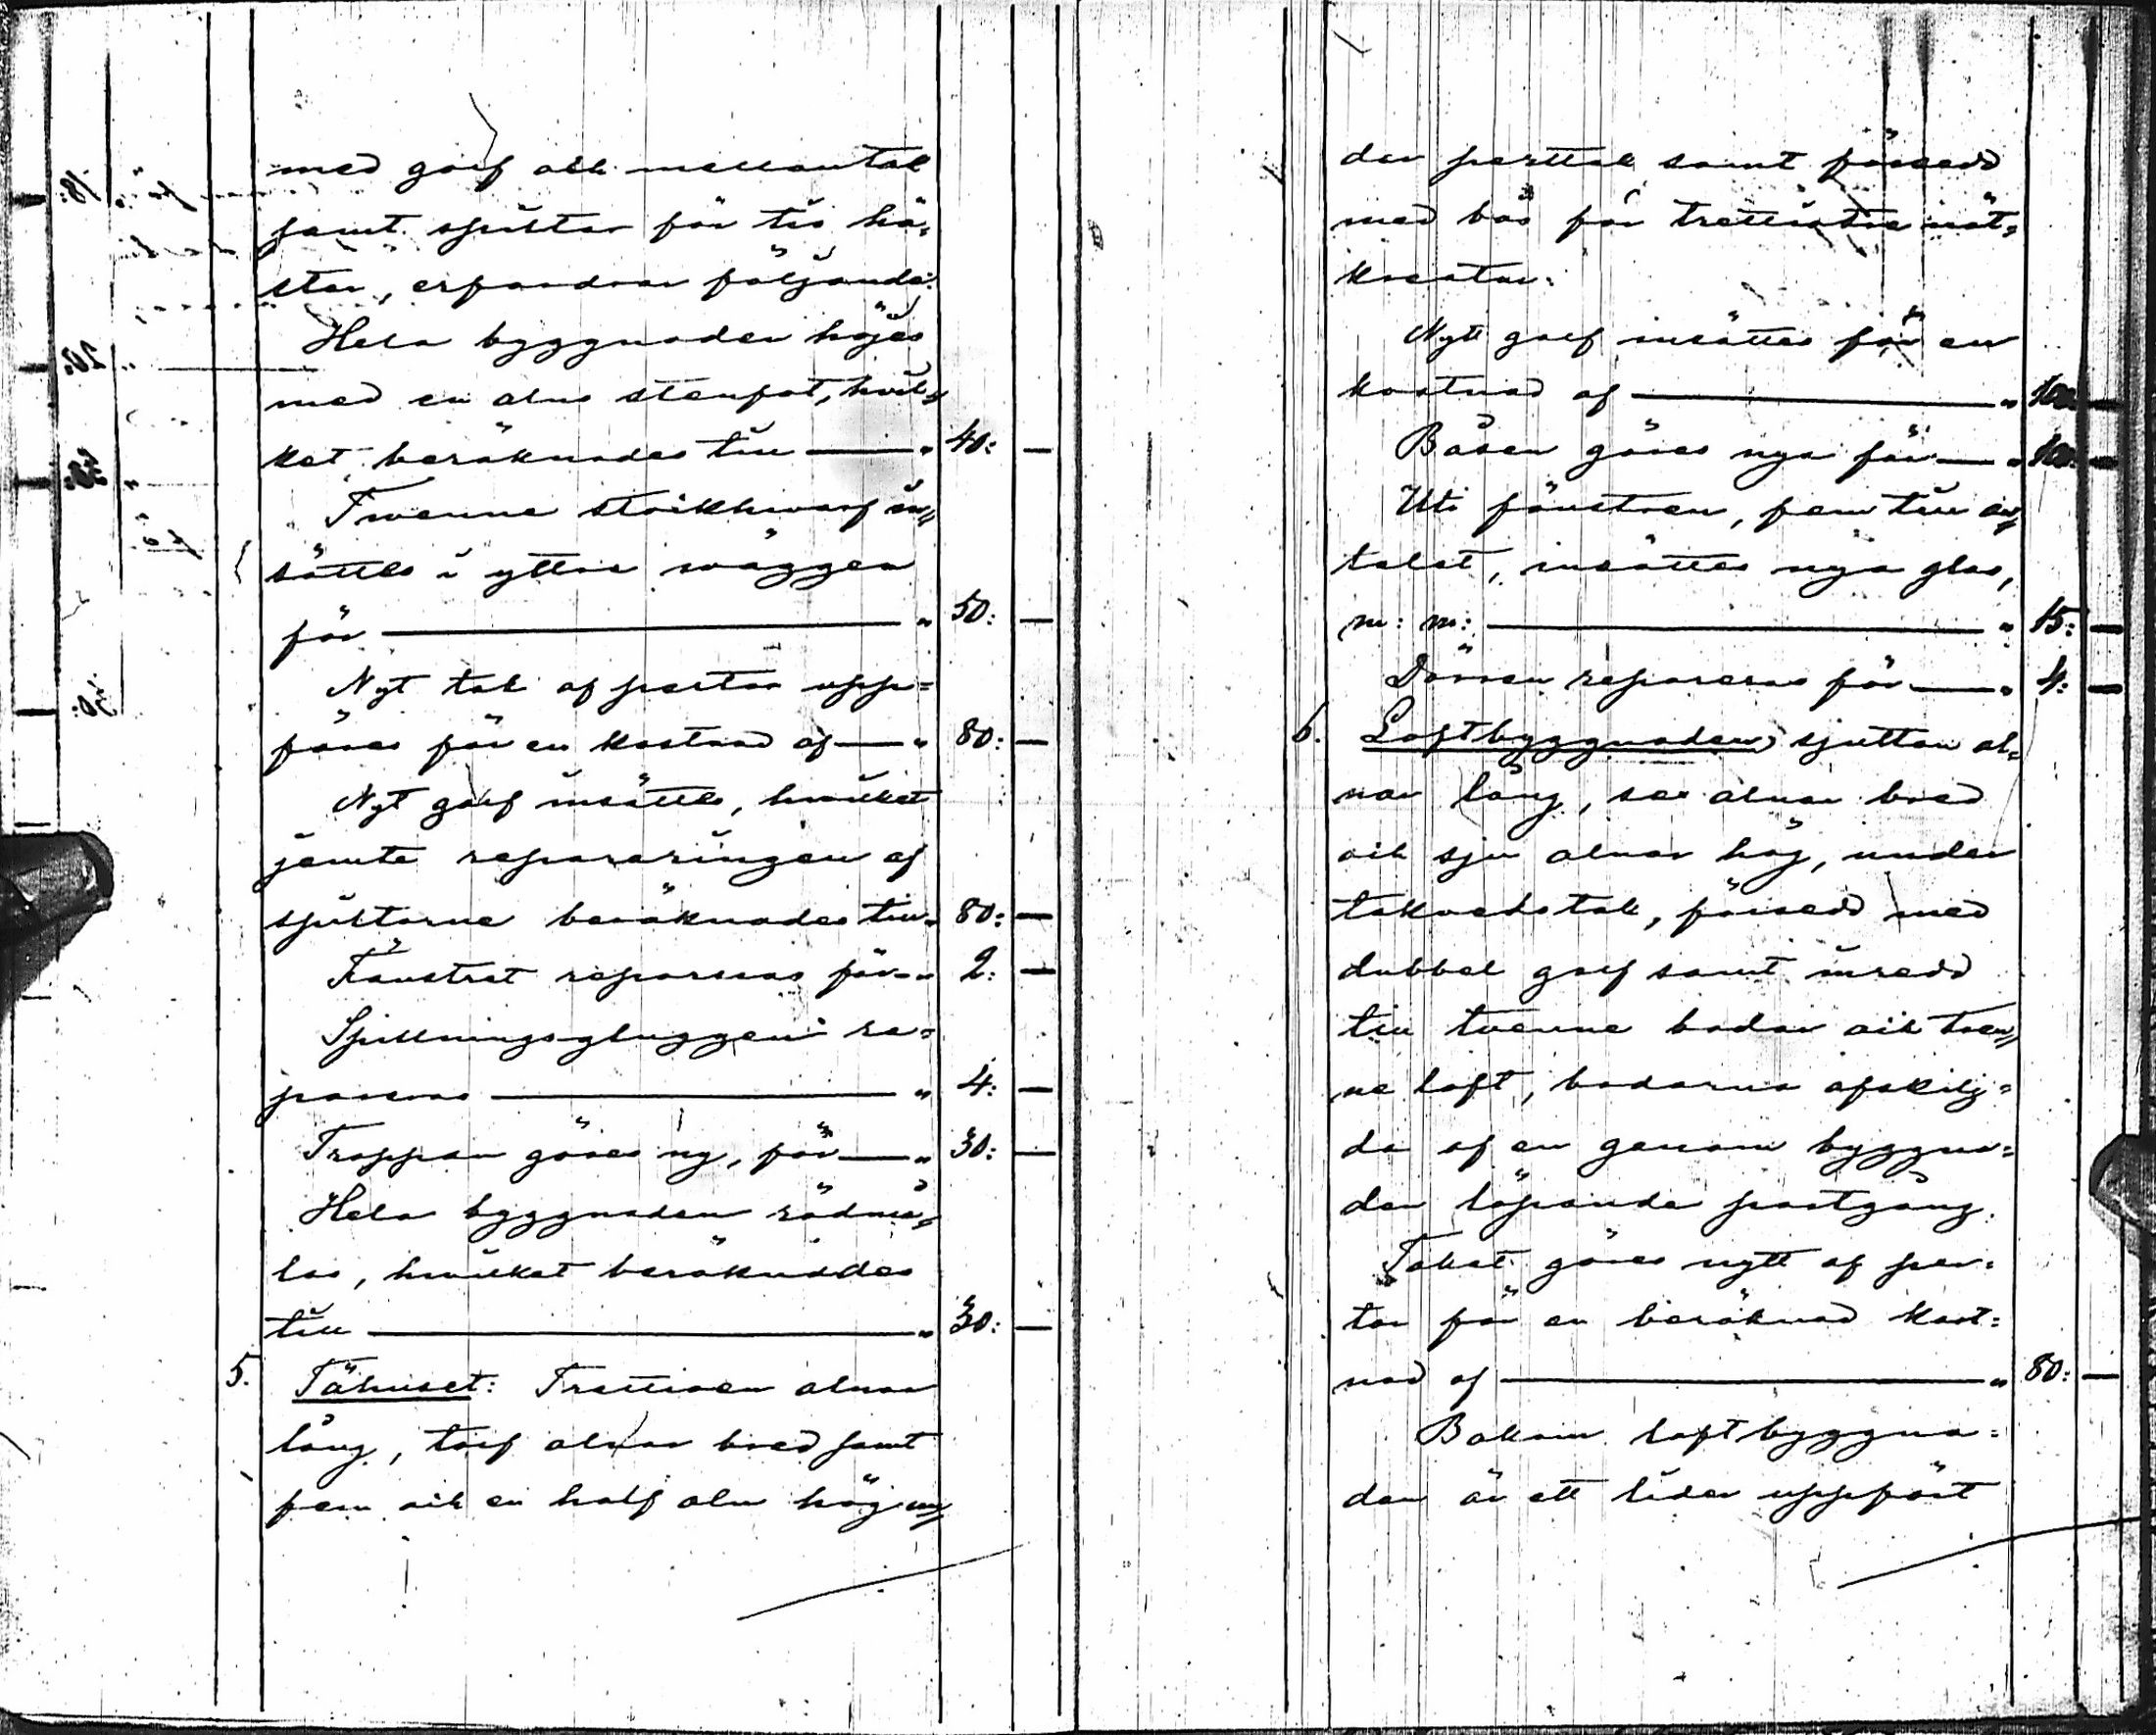 med golf och mellantak
samt spiltor för tio hä=
star, erfordrar följande:
Hela byggnaden höjes
med en alns stenfot, hvil=
ket beräknades till — „ 40: —
Twenne stockhwarf in=
sättes i yttre wäggen
för — „ 50: —
Nytt tak af pertor upp=
föres för en kostnad af — „ 80: —
Nytt golf insättes, hwilket
jemte repareringen af
spiltorne beräknades till „ 80: —
Fönstret repareras för „ 2: —
Spillningsgluggen re=
pareras — „ 4: —
Trappan göres ny, för — „ 30: —
Hela byggnaden rödmå=
las, hwilket beräknades
till — „ 30: —
5. Fähuset: Trettioen alnar
lång, tolf alnar bred samt
fem och en half aln hög un=
der perttak samt försedd
med bås för trettiotre nöt=
kreatur.
Nytt golf insättes för en
kostnad af — „ 100: —
Båsen göres nya för — „ 100: —
Uti fönstren, fem till an=
talet, insättes nya glas,
m: m: — „ 15: —
Dörren repareras för — „ 4: —
6. Loftbyggnaden, sjutton al=
nar lång, sex alnar bred
och sju alnar hög, under
takvedstak, försedd med
dubbel golf samt inredd
till tvenne bodar och tven=
ne loft, bodarna afskilj=
da af en genom byggna=
den löpande portgång.
Taket göres nytt af per=
tor för en beräknad kost=
nad af — „ 80: —
Bakom loftbyggna=
den är ett lider uppfört